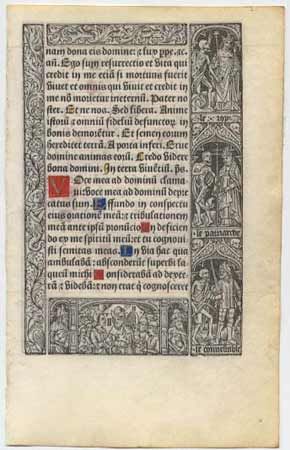 nam dona eis domine: ⁊ luy ppe. ⁊c.
añ. Ego sum resurrectio et vita qui
credit in me etiã si mortuus fuerit
viuet et omnis qui viuit et credit
in me nõ morietur ineternũ. Pater no
ster. Et ne nos. Sed libera. Anime
istorũ ⁊ omniũ fideliũ defunctor in
bonis demorẽtur. Et semen eorum
hereditet terrã. A porta inferi. Erue
domine animas eorũ. Credo videre
bona domini. In terra viuẽtiũ. ps.
Voce mea ad dominũ clama
ui: voce mea ad dominũ depre
catus sum. Effundo in conspectu
eius orationẽ meã: ⁊ tribulationem
meã ante ipsũ pronũcio In deficien
do ex me spiritũ meũ: et tu cognoui
sti semitas meas. In via hac qua
ambulabã: absconderũt superbi la
queũ michi Considerabã ad dexte
rã ⁊ videbã: ⁊ non erat q̃ cognosceret
le patriarche
le connestable